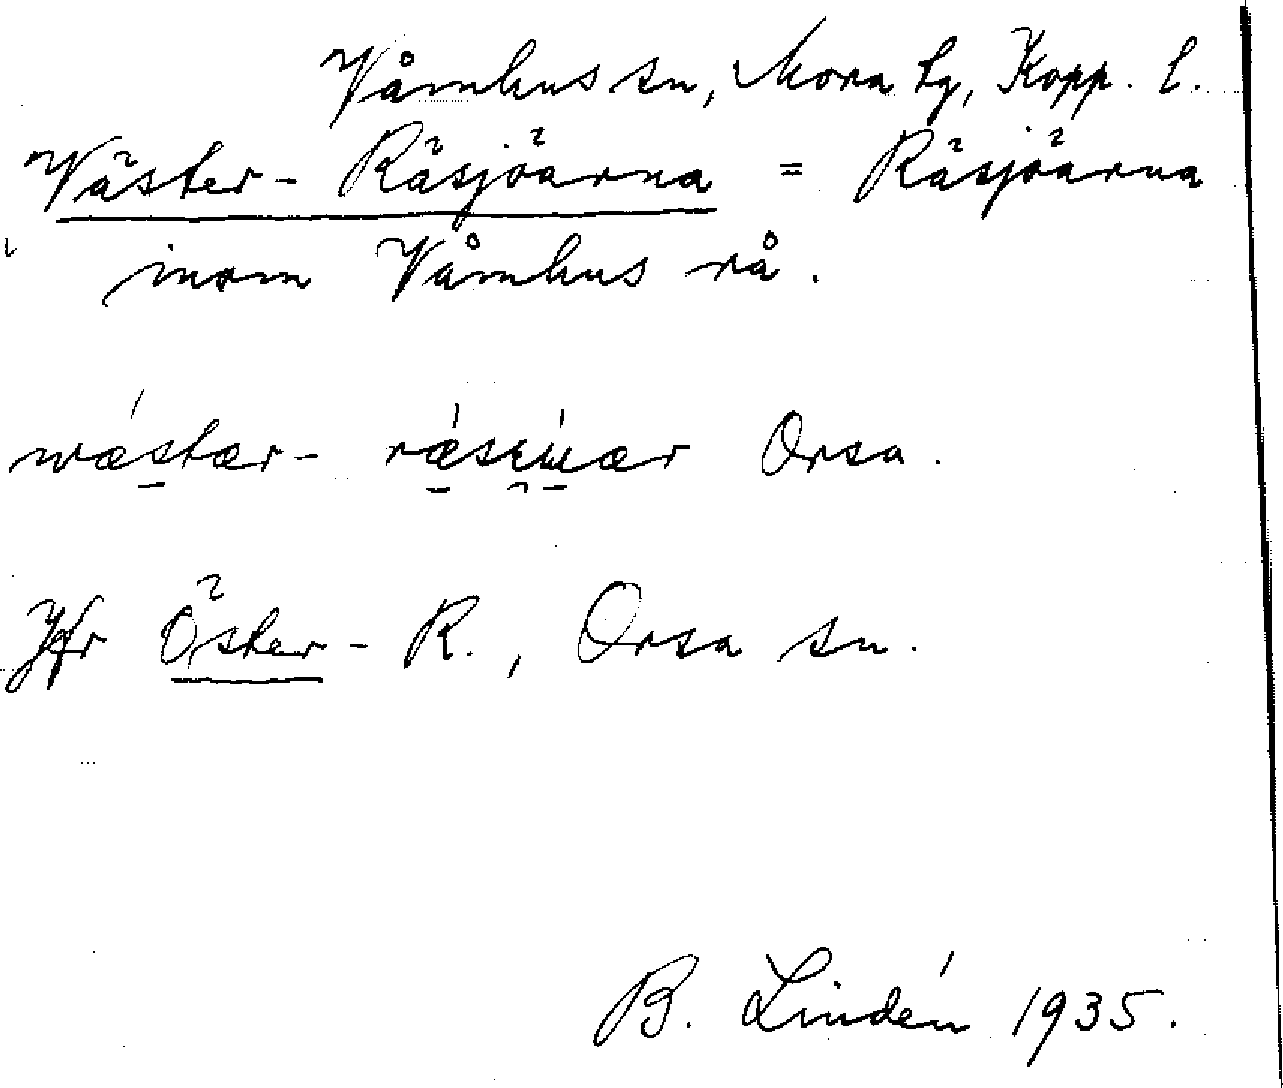 Våmhus sn, Mora tg, Kopp. l.
Väster- Räsjöarna = Räsjöarna
inom Våmhus rå.
Orsa.
Jfr Öster- R., Orsa sn.
B. Lindén 1935.